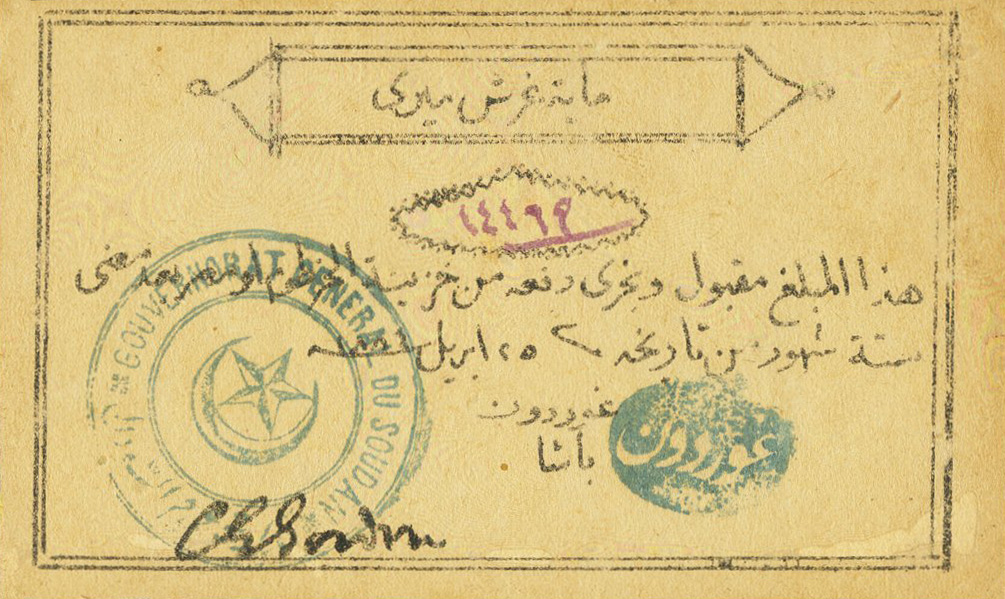 ماية غرش ميرى
١٤٤٦٩
هذا المبلغ مقبول ويجرى دفعه من خزينة الخرطوم او مصر بعد مضى
ستة شهور من تاريخه ٢٥ ابريل سنة
غوردون
باشا
غوردون
GOUVERNORAT GENERAL DU SOUDAN
C G Gordon